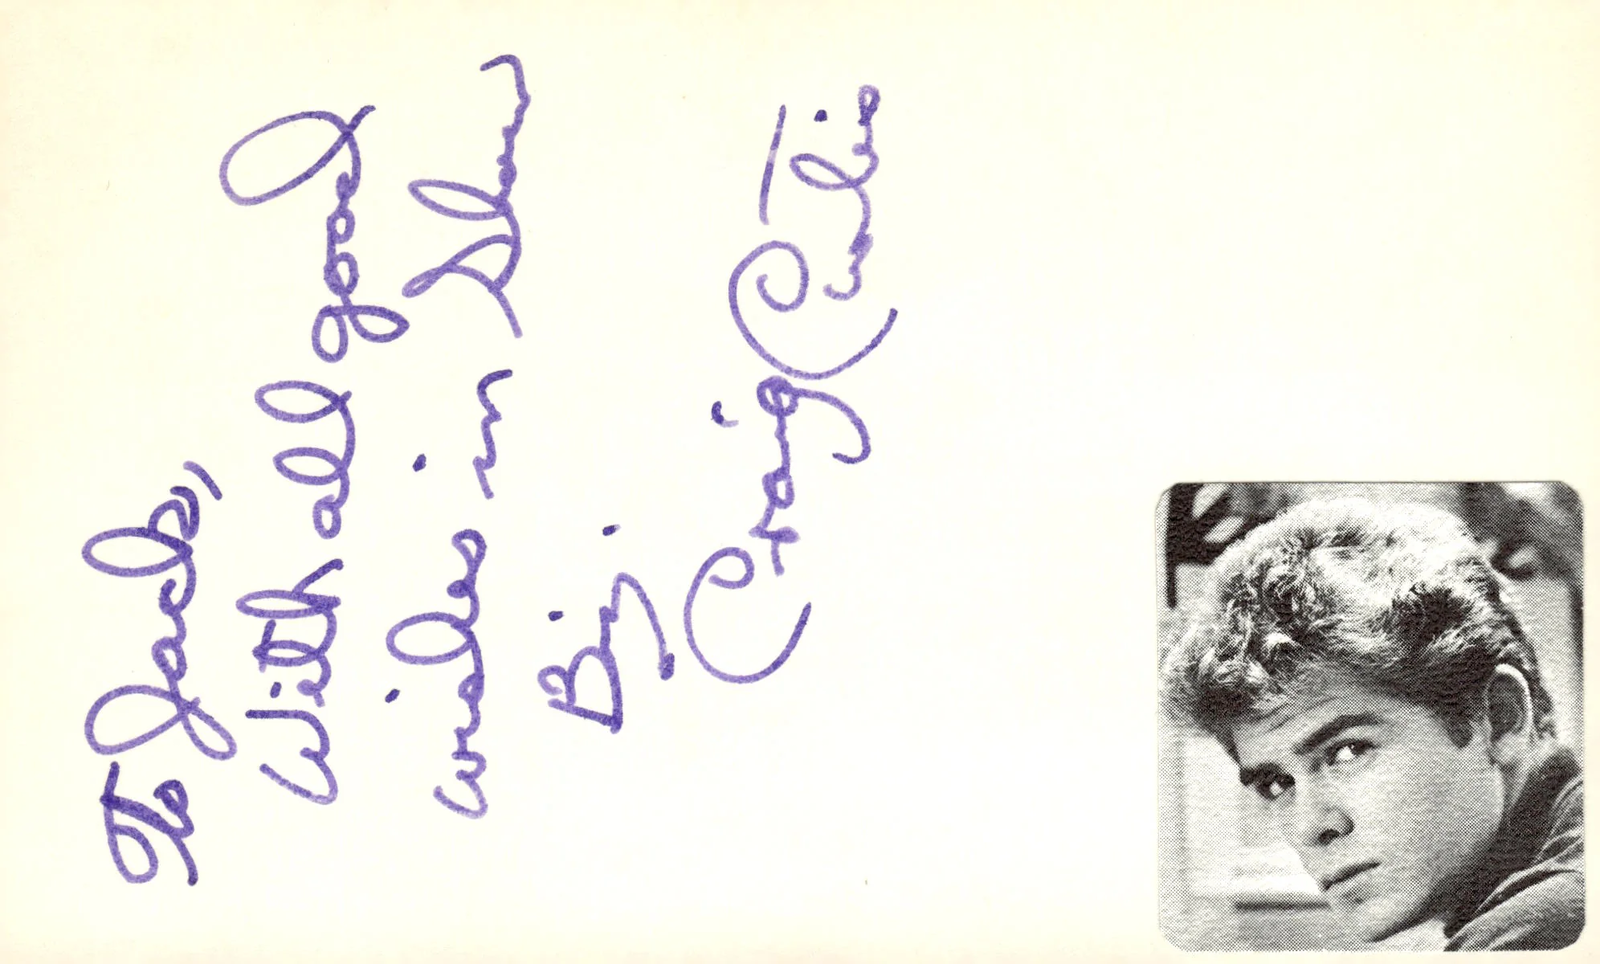 To Jack,
With all good
wishes in Show
Biz.
Craig Curtis